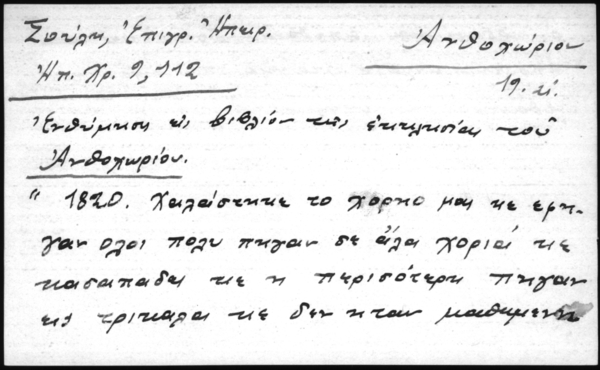 Σούλη, Ἐπιγρ. Ἠπειρ.
Ἀνθοχώριον
Ἠπ. Χρ. 9, 112
19. αἰ.
Ἐνθύμηση εἰς βιβλίον τῆς ἐκκλησίας τοῦ
Ἀνθοχωρίου.
" 1820. Χαλάστηκε το χορηο μας κε ερη-
γαν ολοι πολυ πηγαν σε ἄλα χοριά κε
κασαπαδες κε η περισότερη πηγαν
εις τρικαλα κε δεν ηταν μαθημενη